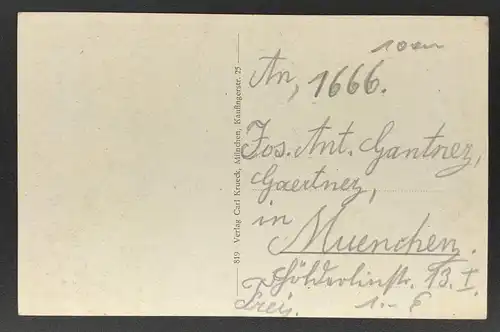 10am
An, 1666.
Jos. Ant. Gantner,
Gaertner,
in
Muenchen.
Hölderlinstr. 13. I.
Frei. 1.- E
819 Verlag Carl Krueck, München, Kaufingerstr. 25